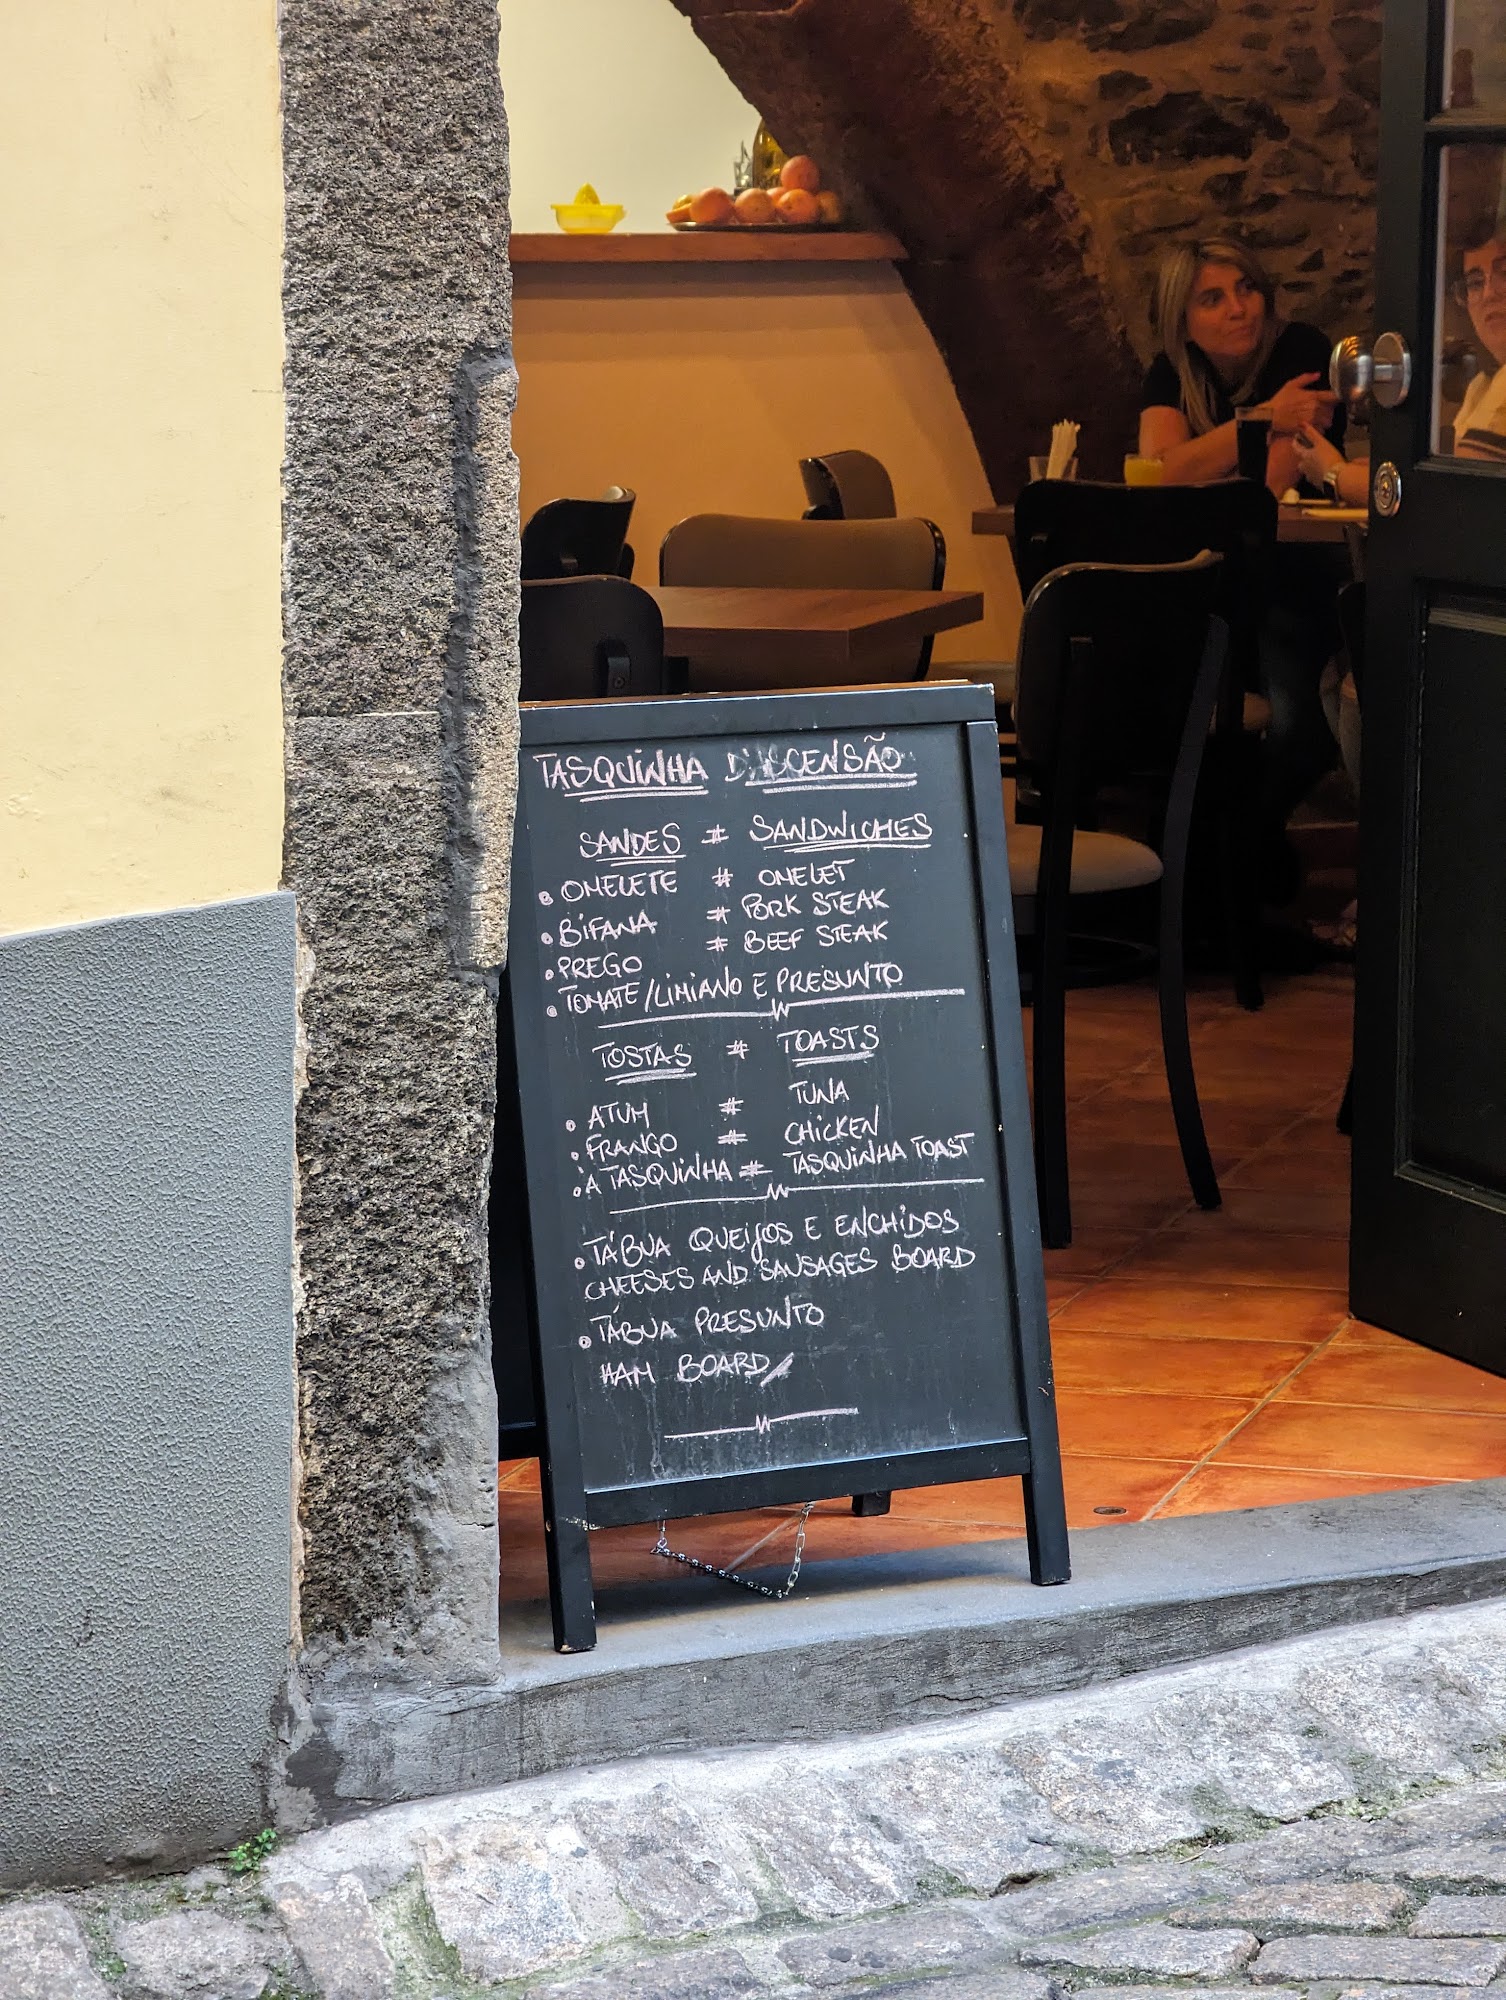 TASQUINHA D'ASCENSÃO
SANDES # SANDWICHES
• OMELETE # OMELET
• BIFANA # PORK STEAK
• PREGO # BEEF STEAK
• TOMATE/LIMIANO E PRESUNTO
TOSTAS # TOASTS
• ATUM # TUNA
• FRANGO # CHICKEN
• À TASQUINHA # TASQUINHA TOAST
• TÁBUA QUEIJOS E ENCHIDOS
CHEESES AND SAUSAGES BOARD
• TÁBUA PRESUNTO
HAM BOARD/